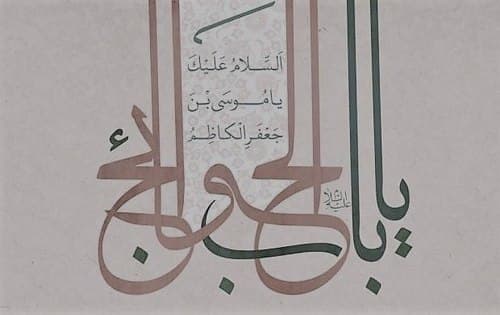 اَلسَّلامُ عَلَيْكَ
يا مُوسَى بْنَ
جَعْفَرٍ الْكاظِمُ
يا باب الحوائج
عليه السلام